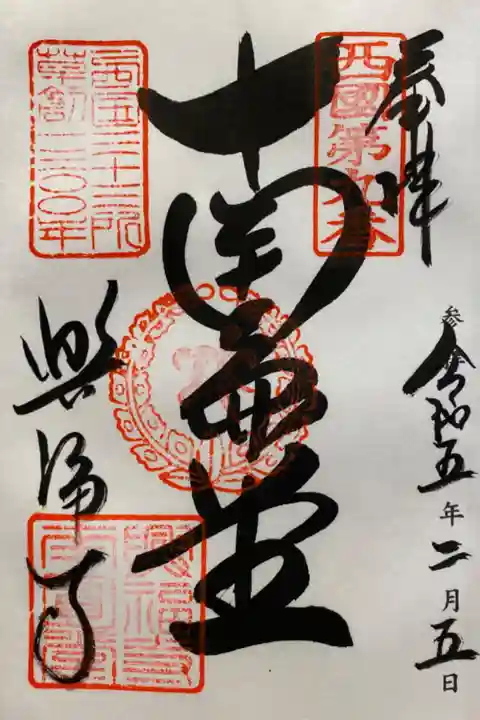 奉拝
西國第九番
参 令和五年二月五日
南圓堂
西国三十三所
草創一三〇〇年
興福寺